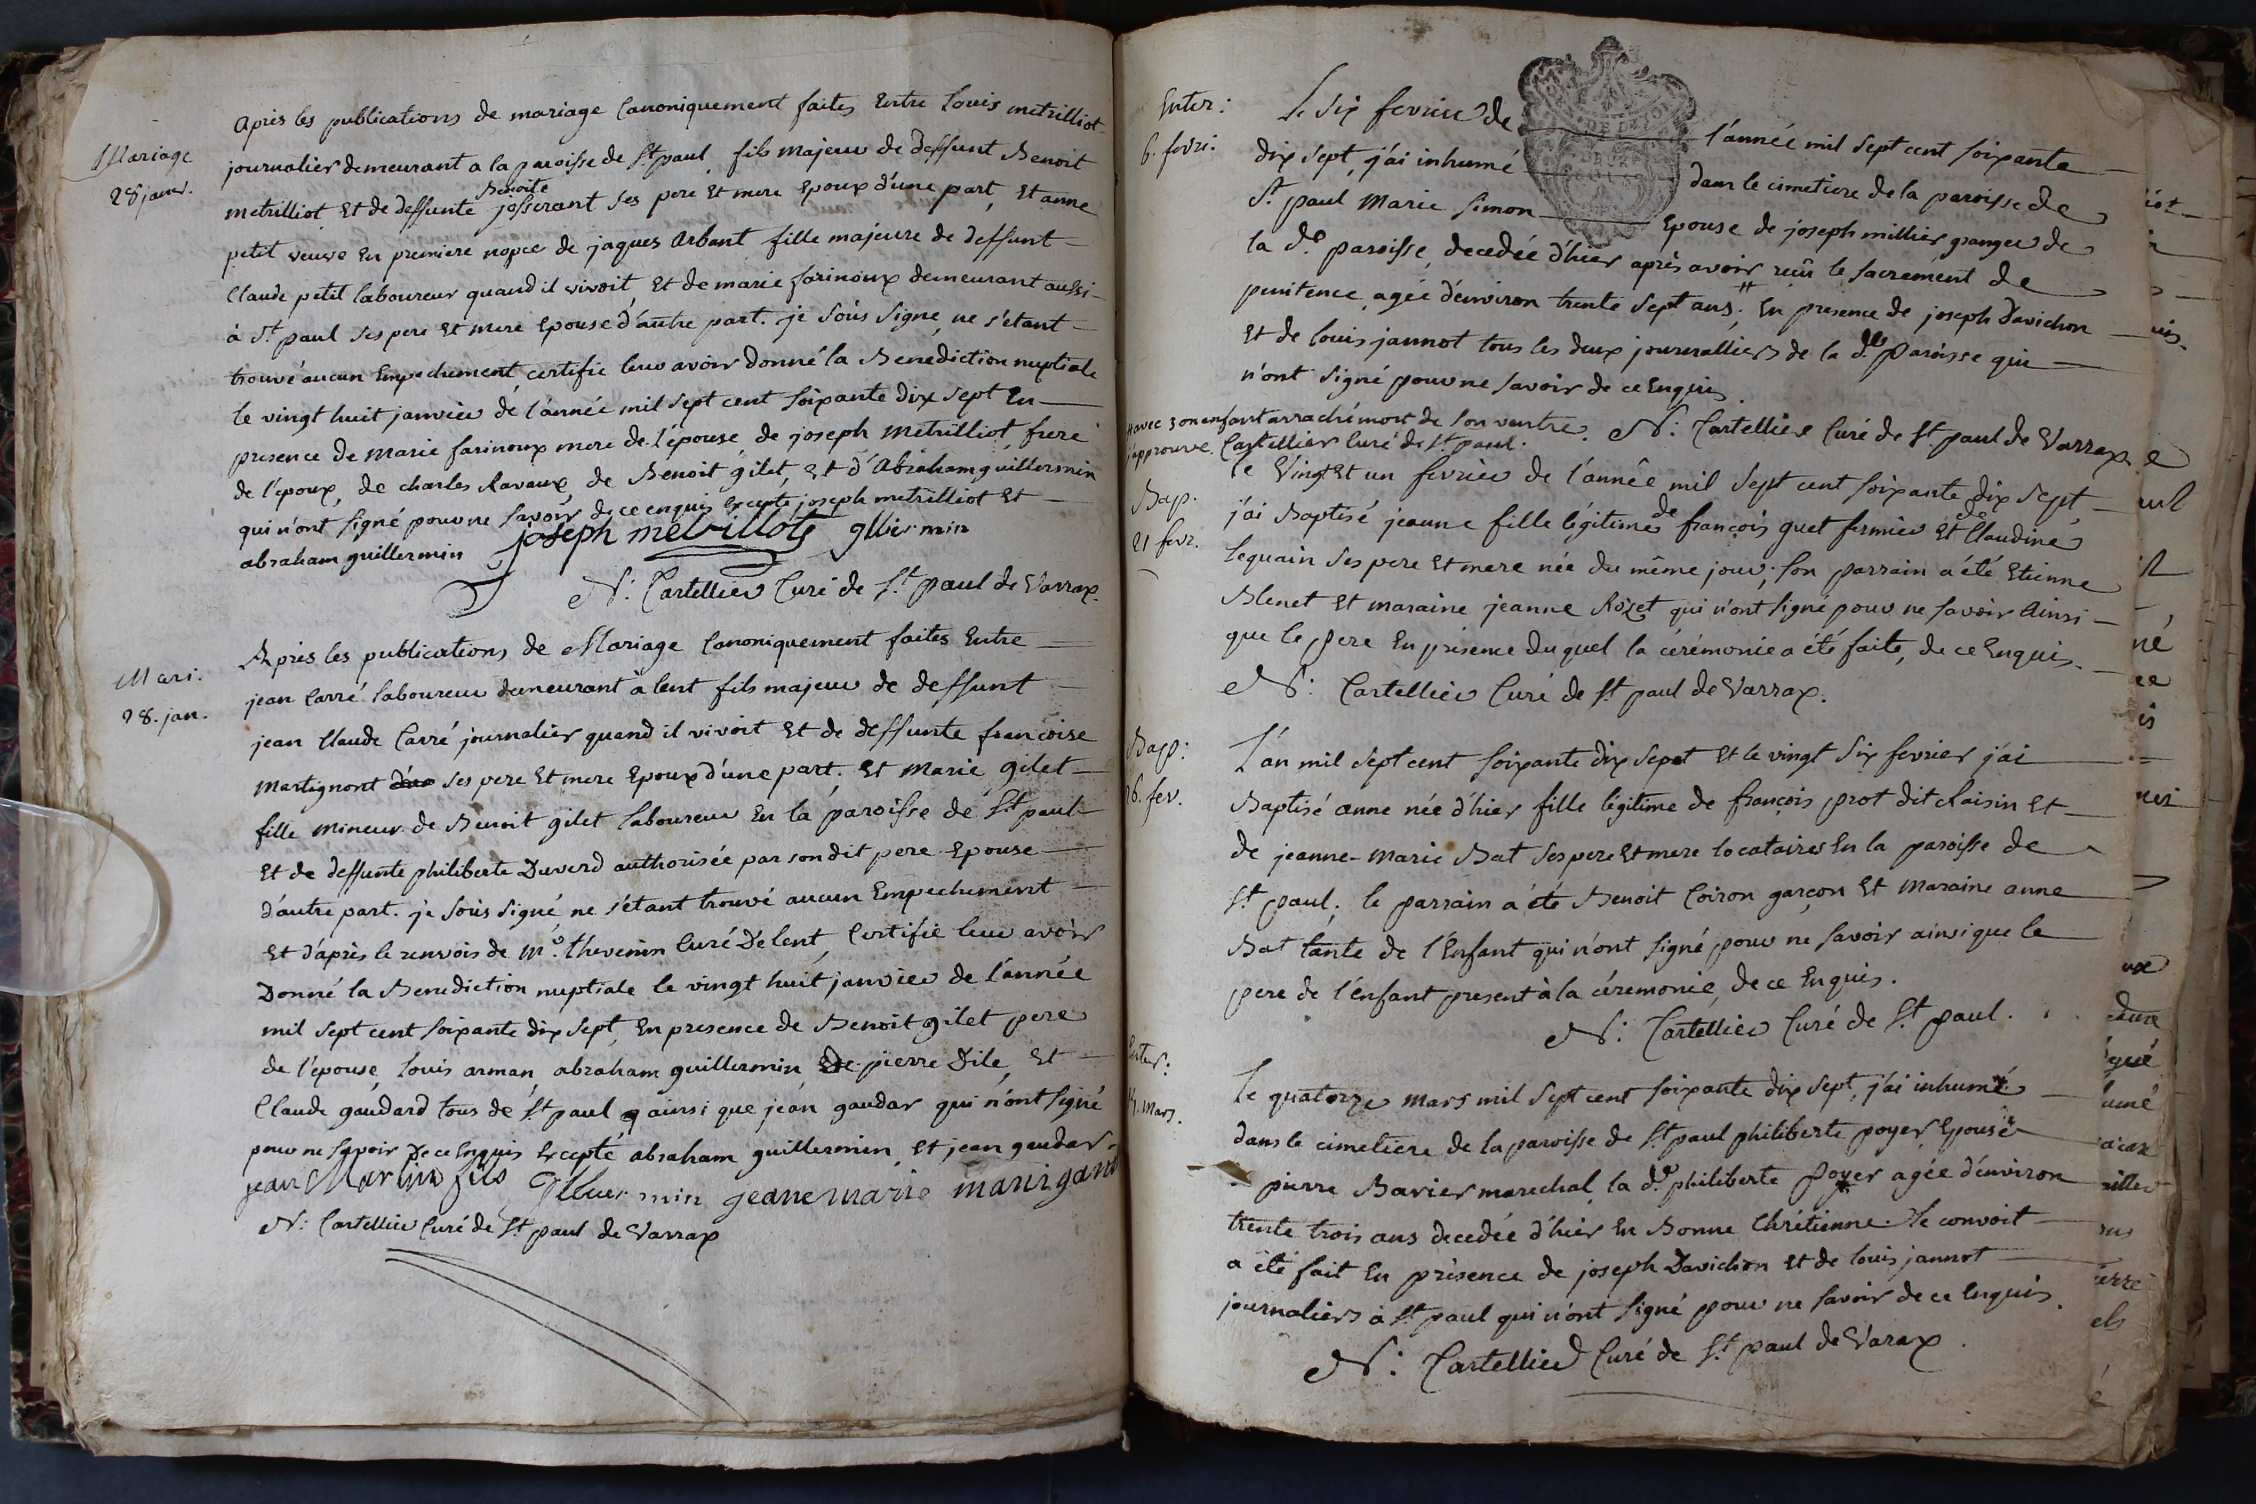 Mariage
28 janv.
Après les publications de mariage Canoniquement faites Entre louis metrilliot
journalier demeurant a la paroisse de St paul, fils majeur de deffunt Benoit
metrilliot Et de deffunte Benoite josserant ses pere Et mere Epoux d'une part, Et anne
petit veuve En premiere nopce de jaques Arbant fille majeure de deffunt
Claude petit laboureur quand il vivoit Et de marie farinoux demeurant aussi
à St paul ses pere Et mere Epouse d'autre part. je soùs signé, ne s'etant
trouvé aucun Empechement certifie leur avoir donné la Benediction nuptiale
le vingt huit janvier de l'année mil sept cent soixante dix sept En
presence de Marie farinoux mere de l'épouse, de joseph metrilliot, frere
de l'époux, de charles Ravaux, de Benoit gilet, Et d'Abraham guillermin
qui n'ont signé pour ne savoir de ce enquis excepté joseph metrilliot Et
abraham guillermin joseph metrillote gllier min
N: Cartellier Curé de St paul de Varrax.
Mari.
28. jan.
Après les publications de Mariage Canoniquement faites Entre
jean Carré laboureur demeurant à lent fils majeur de deffunt
jean Claude Carré journalier quand il vivoit Et de deffunte françoise
Martignont ses pere Et mere Epoux d'une part. Et Marie gilet
fille mineur de Benoit gilet laboureur En la paroisse de St paul
Et de deffunte philiberte Duverd authorisée par son dit pere Epouse
d'autre part. je soùs signé ne s'étant trouvé aucun Empechement
Et d'après le renvois de Mr. thevenin Curé De lent, Certifie leur avoir
Donné la Benediction nuptiale le vingt huit janvier de l'année
mil sept cent soixante dix sept, En presence de Benoit gilet pere
de l'épouse, louis arman, abraham guillermin pierre Dile, Et
Claude gaudard tous de St paul ainsi que jean gaudar qui n'ont signé
pour ne savoir De ce Enquis Excepté abraham guillermin, Et jean gaudar
jean Martin fils min jeane marie
N: Cartellier Curé de St paul de Varrax
Enter:
6. fevri:
Le six fevrier de l'année mil sept cent soixante
dix sept, j'ai inhumé dans le cimetiere de la paroisse de
St. paul Marie simon Epouse de joseph millier granger de
la de. paroisse, decedée d'hier après avoir reçû le sacrement de
penitence, agée d'environ trente sept ans; # En presence de joseph Davichon
Et de louis jannot tous les deux journalliers de la de. Paroisse qui
n'ont signé pour ne savoir de ce Enquis.
# avec son enfant arraché mort de son ventre. N: Cartellier Curé de St. paul de Varrax
j'approuve. Cartellier Curé de St. paul.
Bap.
21 fevr.
le Vingt Et un fevrier de l'année mil sept cent soixante dix sept,
j'ai Baptisé jeanne fille légitime de françois guet fermier Et de Claudine
lequain ses pere Et mere née du même jour; son parrain a été Etienne
Blenet Et maraine jeanne Rozet qui n'ont signé pour ne savoir Ainsi
que le pere En présence du quel la cérémonie a été faite, de ce Enquis.
N: Cartellier Curé de St paul de Varrax.
Bap:
26. fev.
L'an mil sept cent soixante dix sept Et le vingt six fevrier j'ai
Baptisé anne née d'hier fille légitime de françois prot dit Raisin Et
de jeanne-Marie Bat ses pere Et mere locataires En la paroisse de
St paul; le parrain a été Benoit Coiron garçon Et Maraine anne
Bat tante de l'Enfant qui n'ont signé pour ne savoir ainsi que le
pere de l'enfant present à la céremonie, de ce Enquis.
N: Cartellier Curé de St. paul.
Enter:
14. Mars.
Le quatorze mars mil sept cent soixante dix sept, j'ai inhumé
dans le cimetiere de la paroisse de St paul philiberte poyer Epouse
pierre Bavier marechal, la de. philiberte Poyer agée d'environ
trente trois ans decedée d'hier En Bonne Chrétienne. le convoit
a été fait En présence de joseph Davichon Et de louis jannot
journaliers à St. paul qui n'ont signé pour ne savoir de ce Enquis.
N: Cartellier Curé de St. paul de Varax.